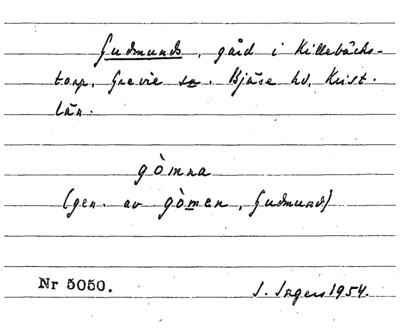 Gudmunds, gård i Killebäcks-
torp, Grevie sn. Bjäre hd, Krist.
län.
gòmna
(gen. av gòmen, Gudmund)
Nr 5050.
S. Ingers 1954.